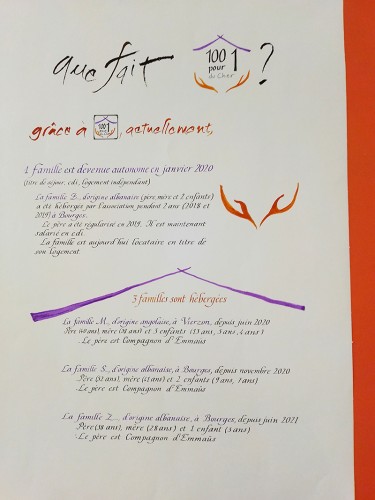 que fait 100 pour 1 du Cher ?
grâce à 100 1, actuellement,
1 famille est devenue autonome en janvier 2020
(titre de séjour, cdi, logement indépendant)
La famille B., d'origine albanaise (père, mère et 2 enfants)
a été hébergée par l'association pendant 2 ans (2018 et
2019) à Bourges.
Le père a été régularisé en 2019. Il est maintenant
salarié en cdi
La famille est aujourd'hui locataire en titre de
son logement
3 familles sont hébergées
La famille M., d'origine angolaise, à Vierzon, depuis juin 2020
Père (40 ans), mère (38 ans) et 3 enfants (13 ans, 5 ans, 4 ans)
. Le père est Compagnon d'Emmaüs
La famille S., d'origine albanaise, à Bourges, depuis novembre 2020
Père (52 ans), mère (41 ans) et 2 enfants (9 ans, 7 ans)
. Le père est Compagnon d'Emmaüs
La famille Z., d'origine albanaise, à Bourges, depuis juin 2021
Père (38 ans), mère (28 ans) et 1 enfant (5 ans)
. Le père est Compagnon d'Emmaüs